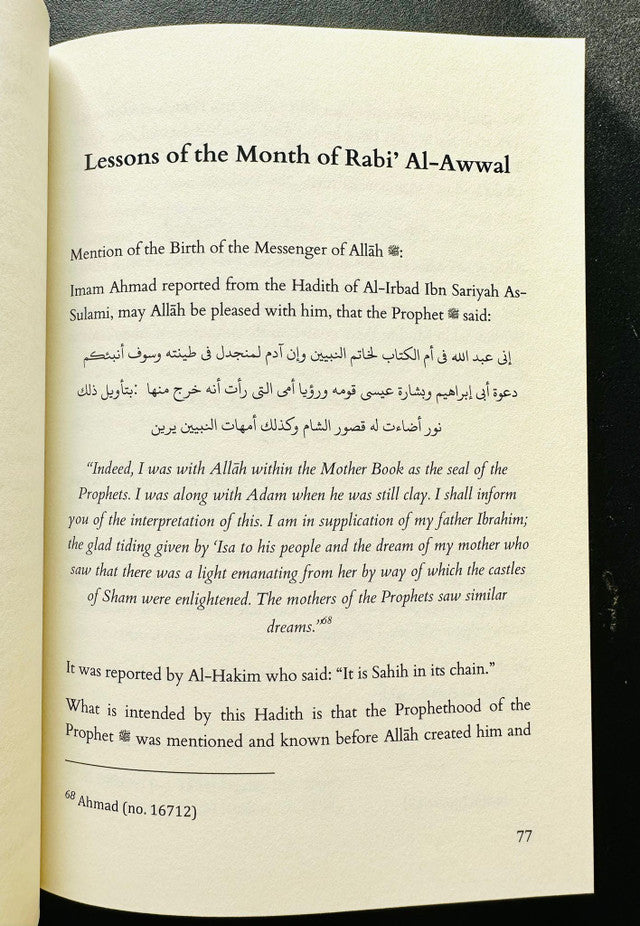 Lessons of the Month of Rabi’ Al-Awwal
Mention of the Birth of the Messenger of Allāh ﷺ:
Imam Ahmad reported from the Hadith of Al-Irbad Ibn Sariyah As-
Sulami, may Allāh be pleased with him, that the Prophet ﷺ said:
إنى عبد الله فى أم الكتاب لخاتم النبيين وإن آدم لمنجدل فى طينته وسوف أنبئكم
دعوة أبى إبراهيم وبشارة عيسى قومه ورؤيا أمى التى رأت أنه خرج منها :بتأويل ذلك
نور أضاءت له قصور الشام وكذلك أمهات النبيين يرين
“Indeed, I was with Allāh within the Mother Book as the seal of the
Prophets. I was along with Adam when he was still clay. I shall inform
you of the interpretation of this. I am in supplication of my father Ibrahim;
the glad tiding given by ‘Isa to his people and the dream of my mother who
saw that there was a light emanating from her by way of which the castles
of Sham were enlightened. The mothers of the Prophets saw similar
dreams.”68
It was reported by Al-Hakim who said: “It is Sahih in its chain.”
What is intended by this Hadith is that the Prophethood of the
Prophet ﷺ was mentioned and known before Allāh created him and
68 Ahmad (no. 16712)
77